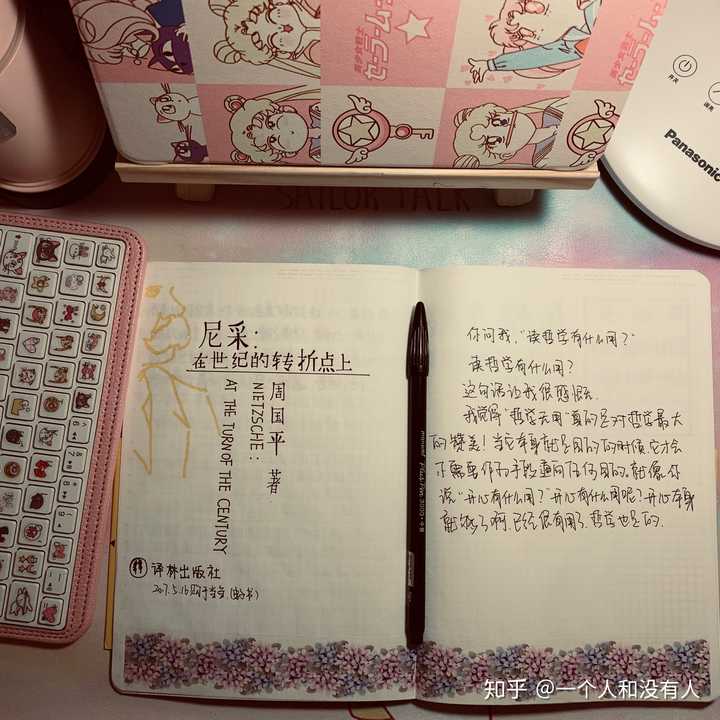 美少女戦士
セーラームーン
开关
Panasonic
SAILOR TALK
尼采:
在世纪的转折点上
周国平 著
NIETZSCHE:
AT THE TURN OF THE CENTURY
译林出版社
你问我,"读哲学有什么用?"
读哲学有什么用?
这句话让我很恼火
我觉得"哲学无用"真的是对哲学最大
的赞美!当它本身就是目的的时候,它才会
不需要作为手段通向任何目的.就像你
说"开心有什么用?"开心有什么用呢?开心本身
就够了啊,已经很有用了.哲学也是的.
知乎 @一个人和没有人